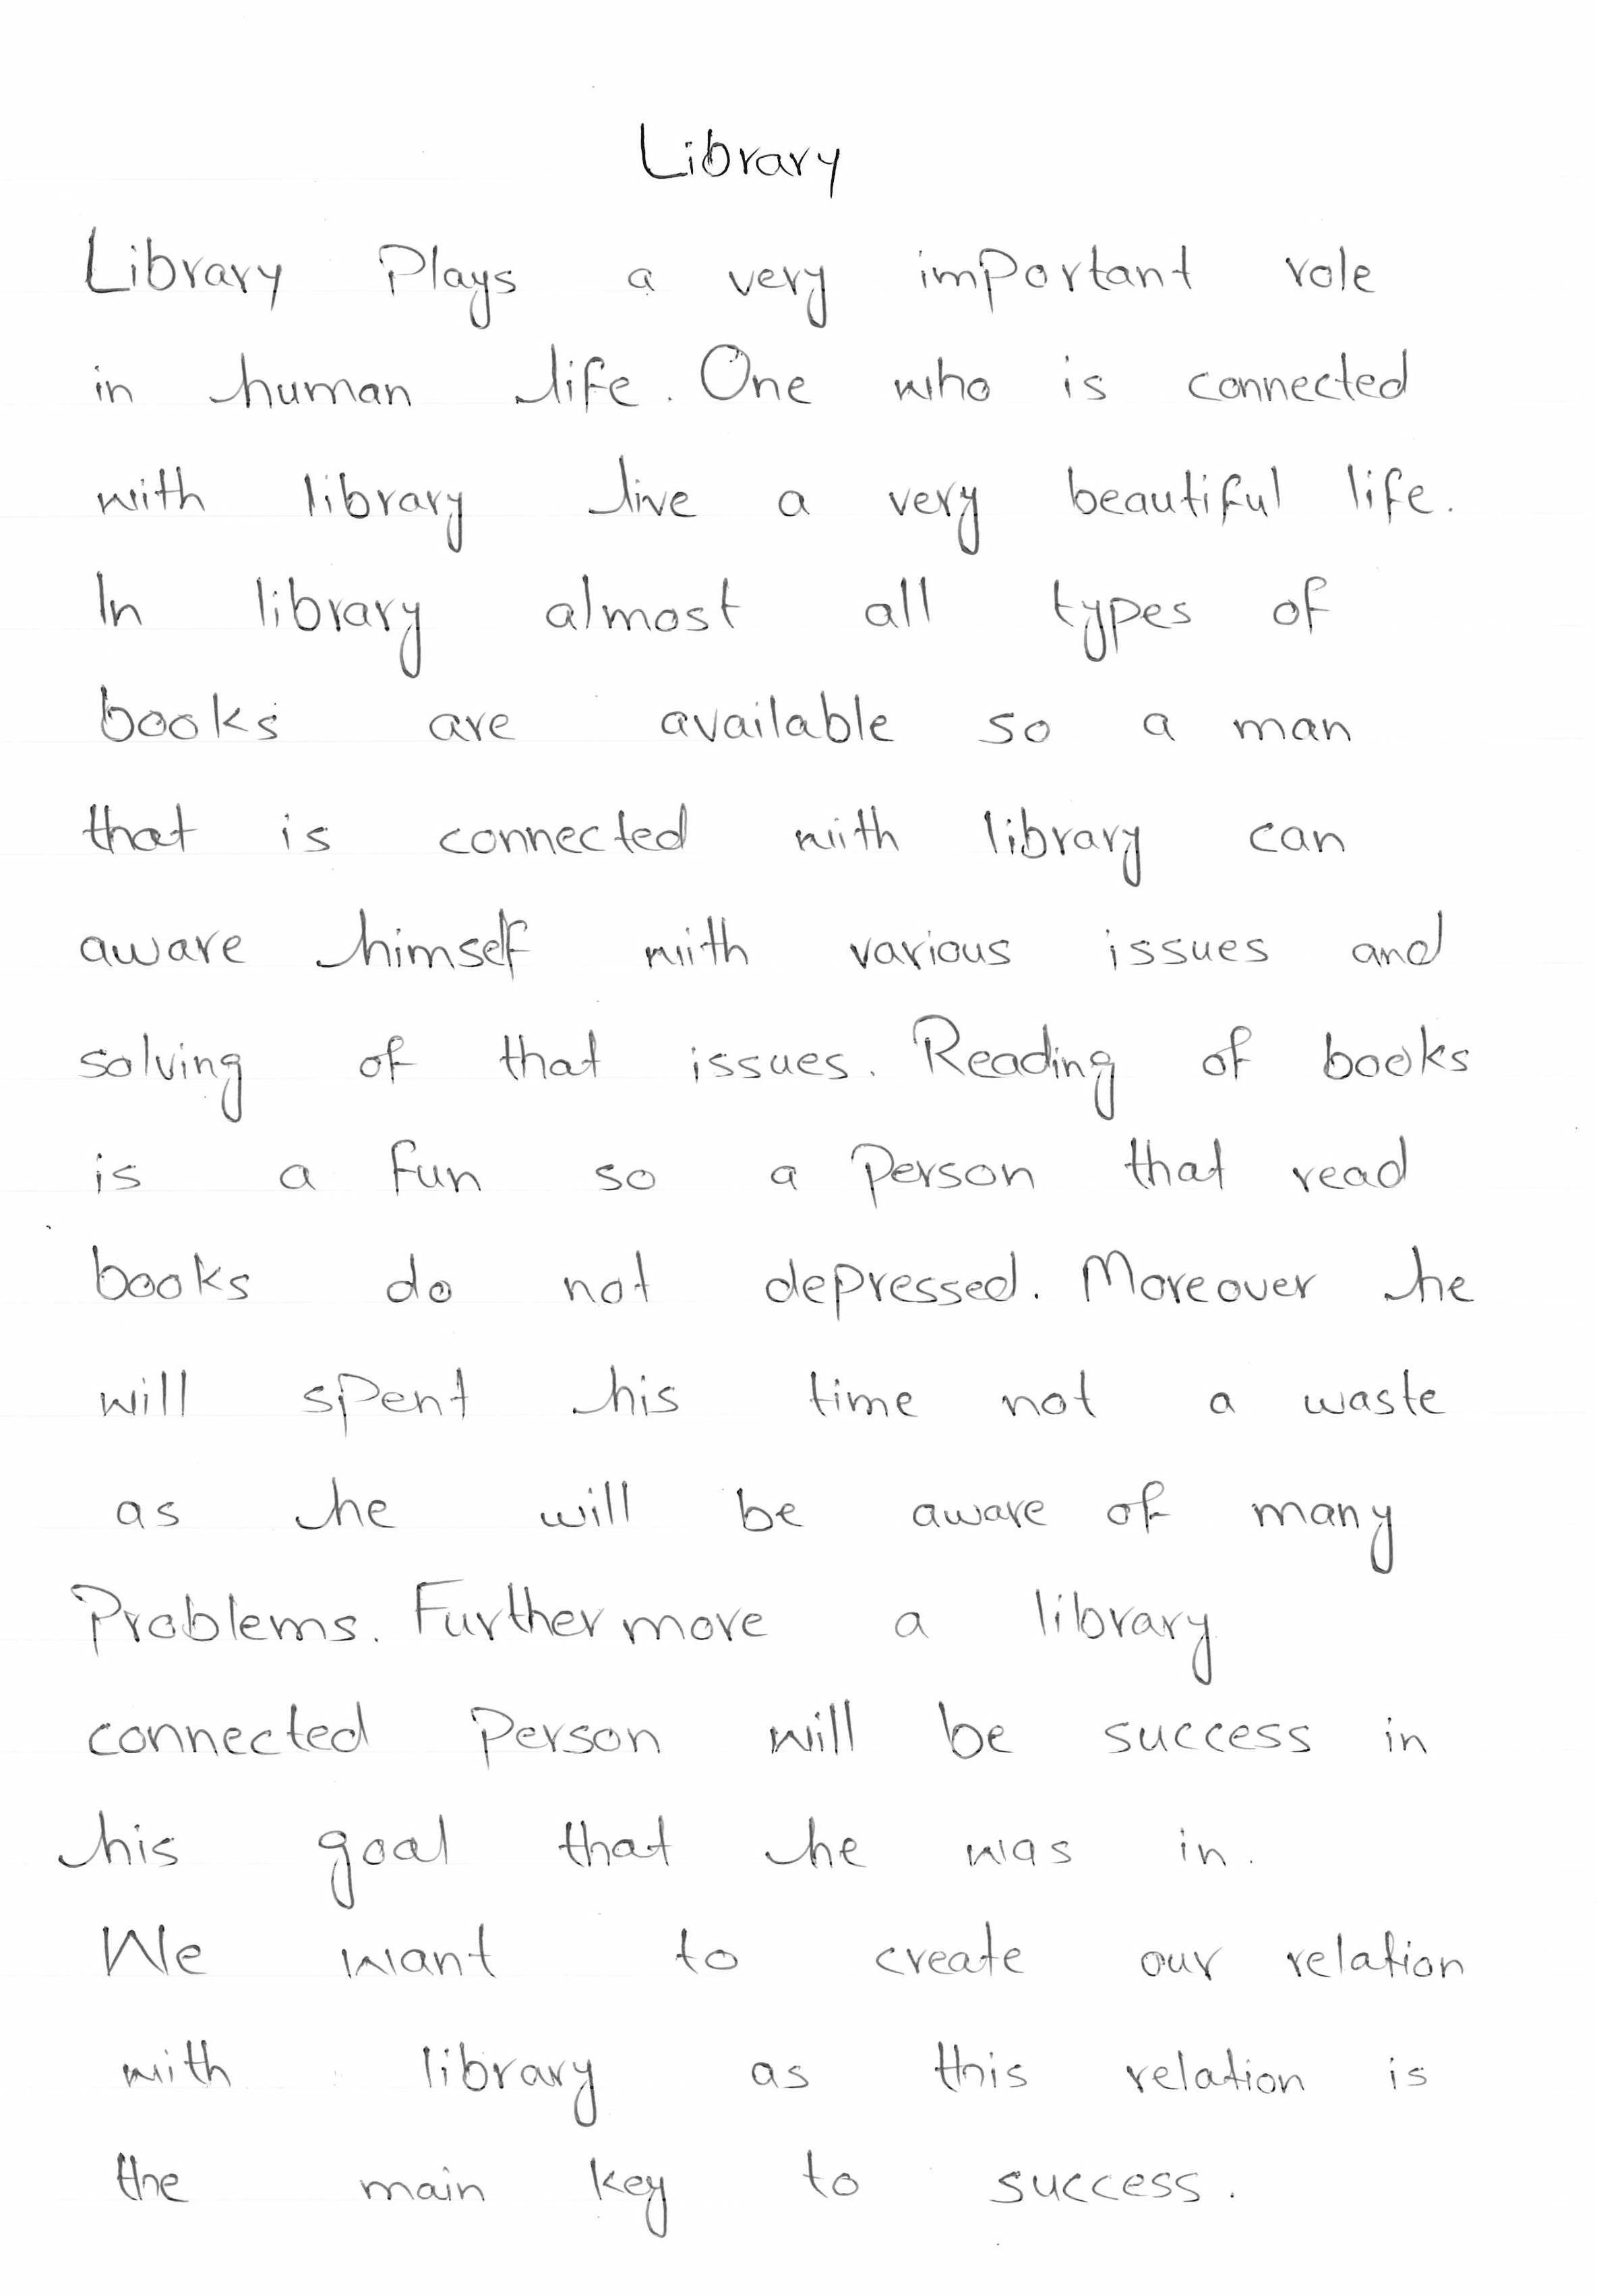 Library
Library Plays a very important role
in human life. One who is connected
with library live a very beautiful life.
In library almost all types of
books are available so a man
that is connected with library can
aware himself with various issues and
solving of that issues. Reading of books
is a fun so a person that read
books do not depressed. Moreover he
will spent his time not a waste
as he will be aware of many
Problems. Furthermore a library
connected Person will be success in
his goal that he was in.
We want to create our relation
with library as this relation is
the main key to success.